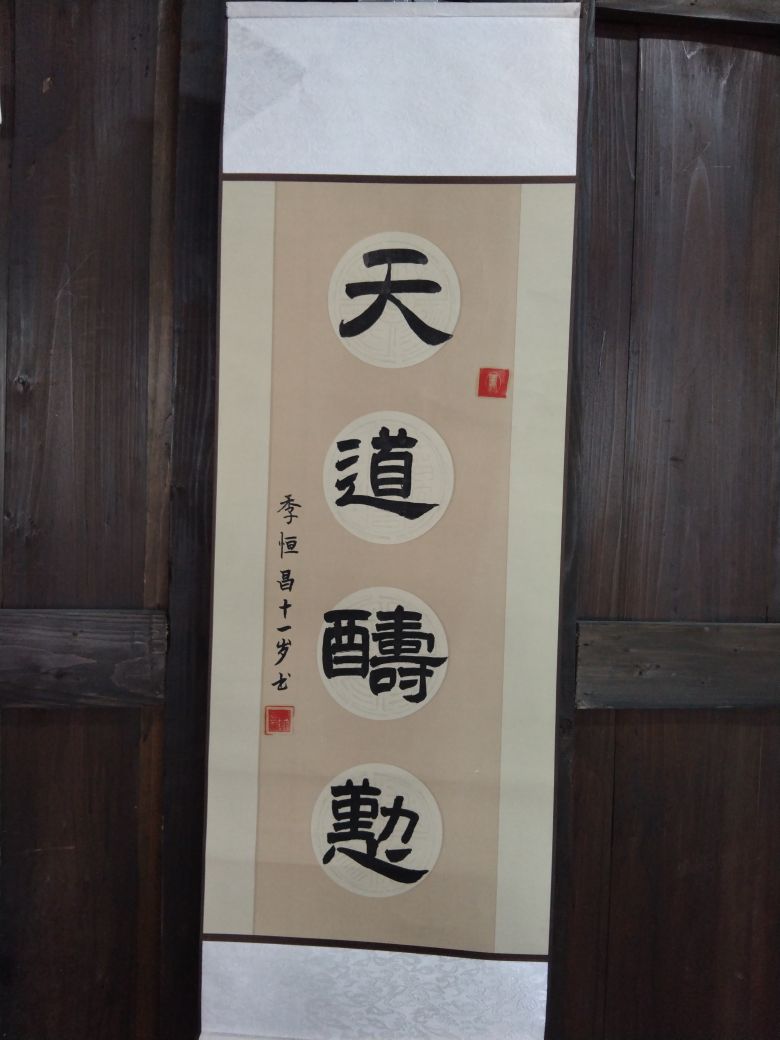 天道醻懃
季恒昌十一岁书